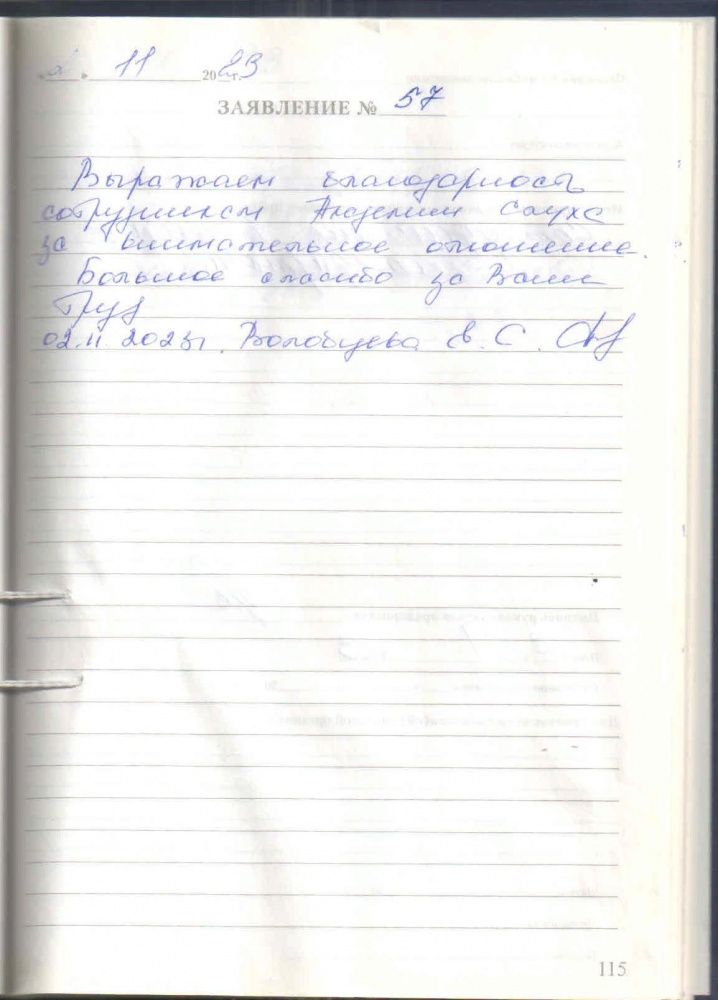 «2» 11 2023
ЗАЯВЛЕНИЕ № 57
Выражаем благодарность
сотрудникам Академии слуха
за внимательное отношение.
Большое спасибо за Ваш
труд
02.11.2023г. Волобуева Е. С.
115